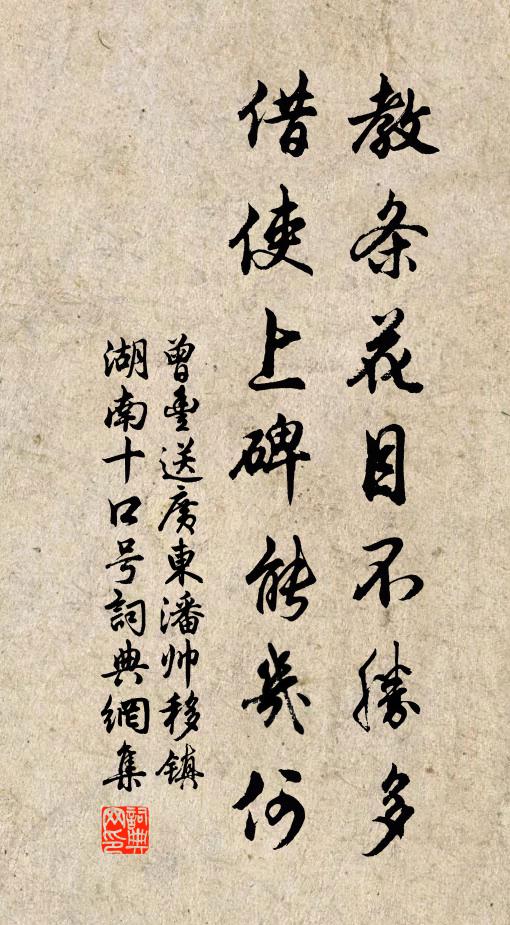 教条花目不勝多
借使上碑能幾何
曾豊送廣東潘帅移鎮
湖南十口号詞典網集
詞典网印